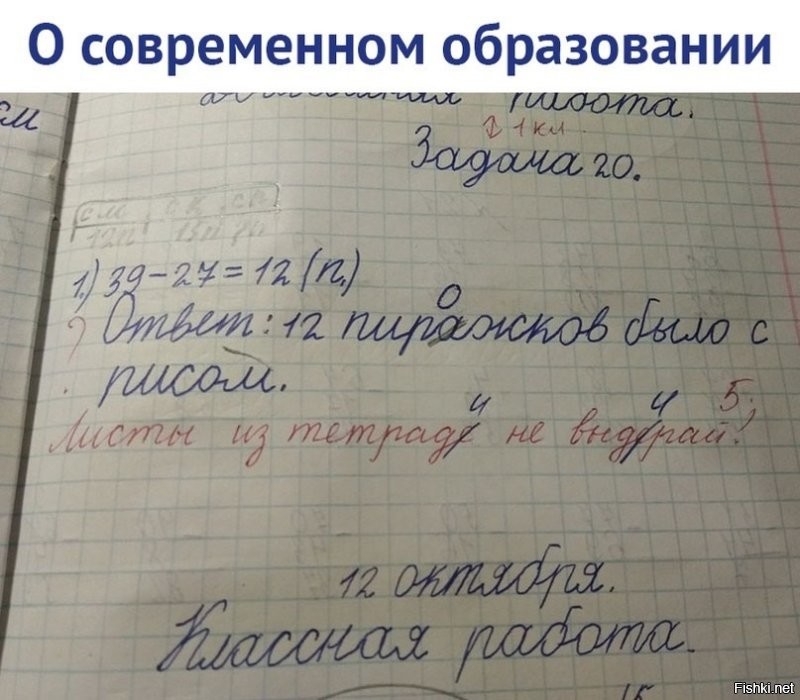 О современном образовании
работа.
1 кл.
Задача 20.
1.) 39-27=12 (п.)
о
Ответ: 12 пиражков было с
рисом.
и и 5;
Листы из тетраде не выдерай!
12 октября.
Классная работа.
Fishki.net